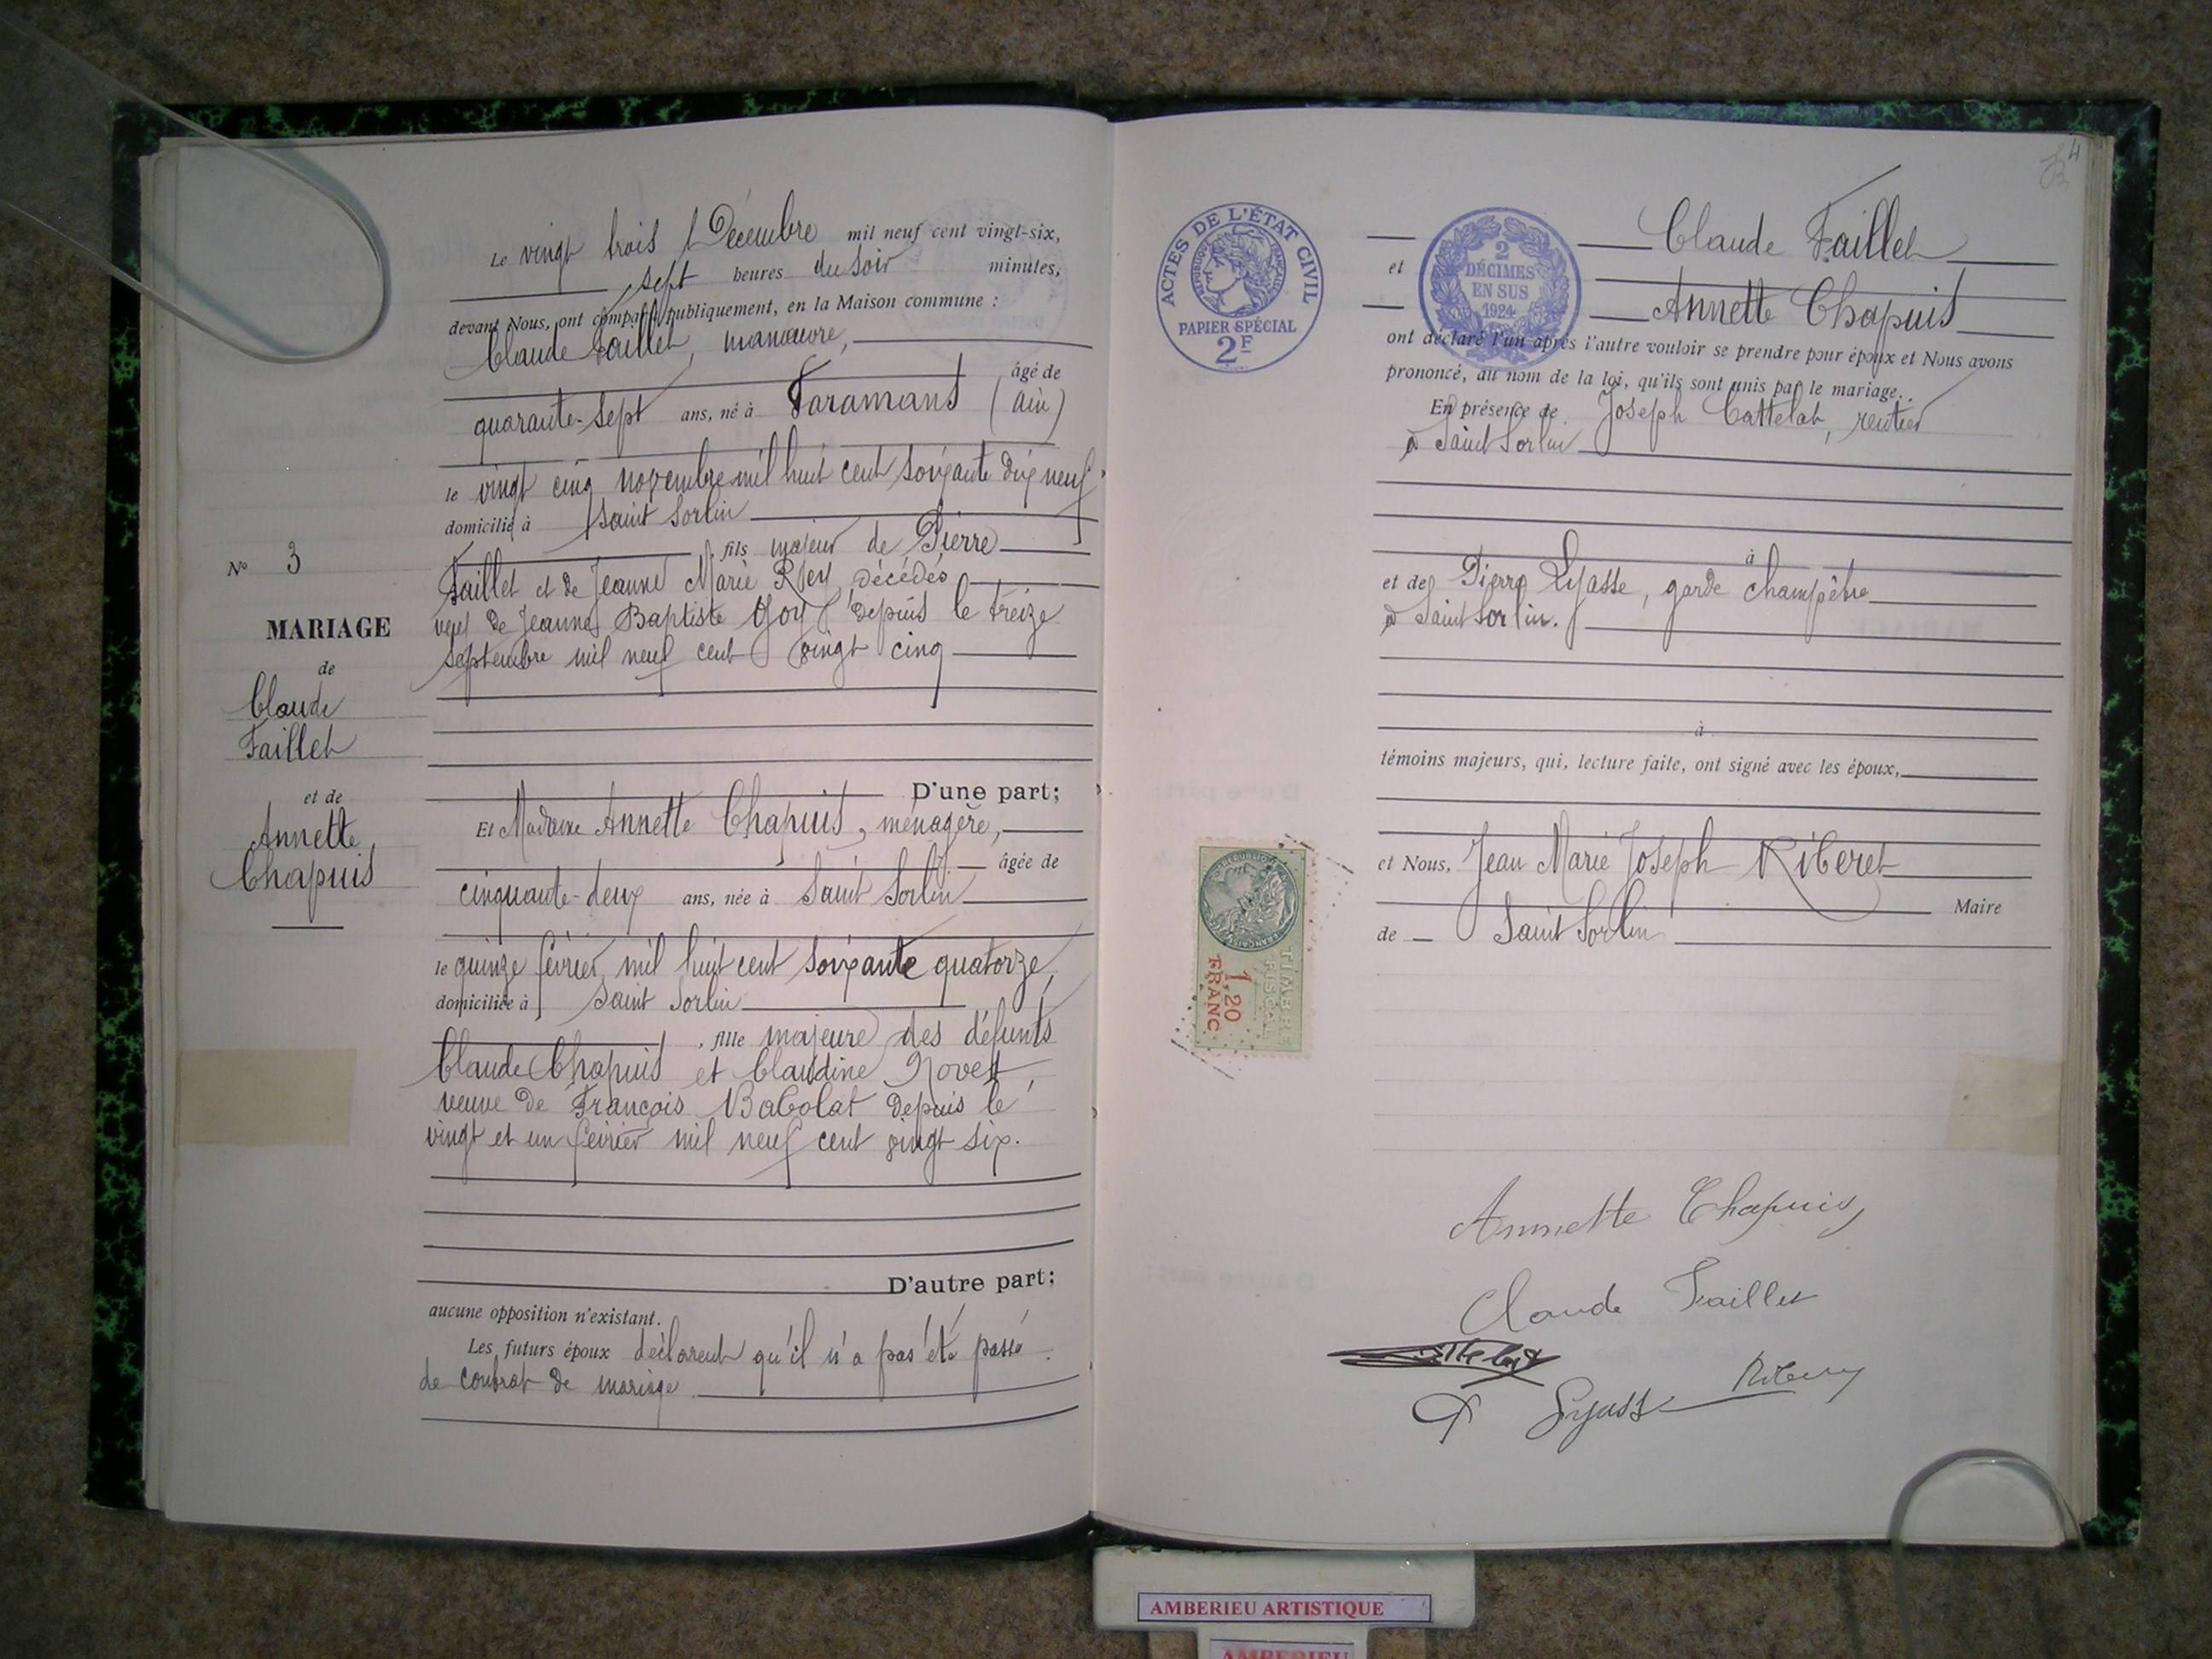 Le vingt trois Décembre mil neuf cent vingt-six,
sept heures du soir minutes,
devant Nous, ont comparu publiquement, en la Maison commune :
Claude Faillet, manœuvre,
âgé de
quarante-sept ans, né à Faramans (ain)
le vingt cinq novembre mil huit cent soixante dix neuf
domicilié à Saint Sorlin
fils majeur de Pierre
Faillet et de Jeanne Marie Rey, décédés
veuf de Jeanne Baptiste Goy depuis le treize
septembre mil neuf cent vingt cinq
N° 3
MARIAGE
de
Claude
Faillet
et de
Annette
Chapuis
D'une part;
Et Madame Annette Chapuis, ménagère,
âgée de
cinquante-deux ans, née à Saint Sorlin
le quinze février mil huit cent soixante quatorze,
domiciliée à Saint Sorlin
, fille majeure des défunts
Claude Chapuis et Claudine
veuve de François Babolat depuis le
vingt et un février mil neuf cent vingt six.
D'autre part;
aucune opposition n'existant.
Les futurs époux déclarent qu'il n'a pas été passé
de contrat de mariage.
4
ACTES DE L'ÉTAT CIVIL
RÉPUBLIQUE FRANÇAISE
PAPIER SPÉCIAL
2F
2
DÉCIMES
EN SUS
1924
Claude Faillet
et
Annette Chapuis
ont déclaré l'un après l'autre vouloir se prendre pour époux et Nous avons
prononcé, au nom de la loi, qu'ils sont unis par le mariage.
En présence de Joseph Cattelat, rentier
à Saint Sorlin
à
et de Pierre Lyasse, garde champêtre
à Saint Sorlin.
à
témoins majeurs, qui, lecture faite, ont signé avec les époux,
et Nous, Jean Marie Joseph Riberet
Maire
de Saint Sorlin
TIMBRE
FISCAL
1,20
FRANC
Annette Chapuis
Claude Faillet
Lyasse
AMBERIEU ARTISTIQUE
AMBERIEU